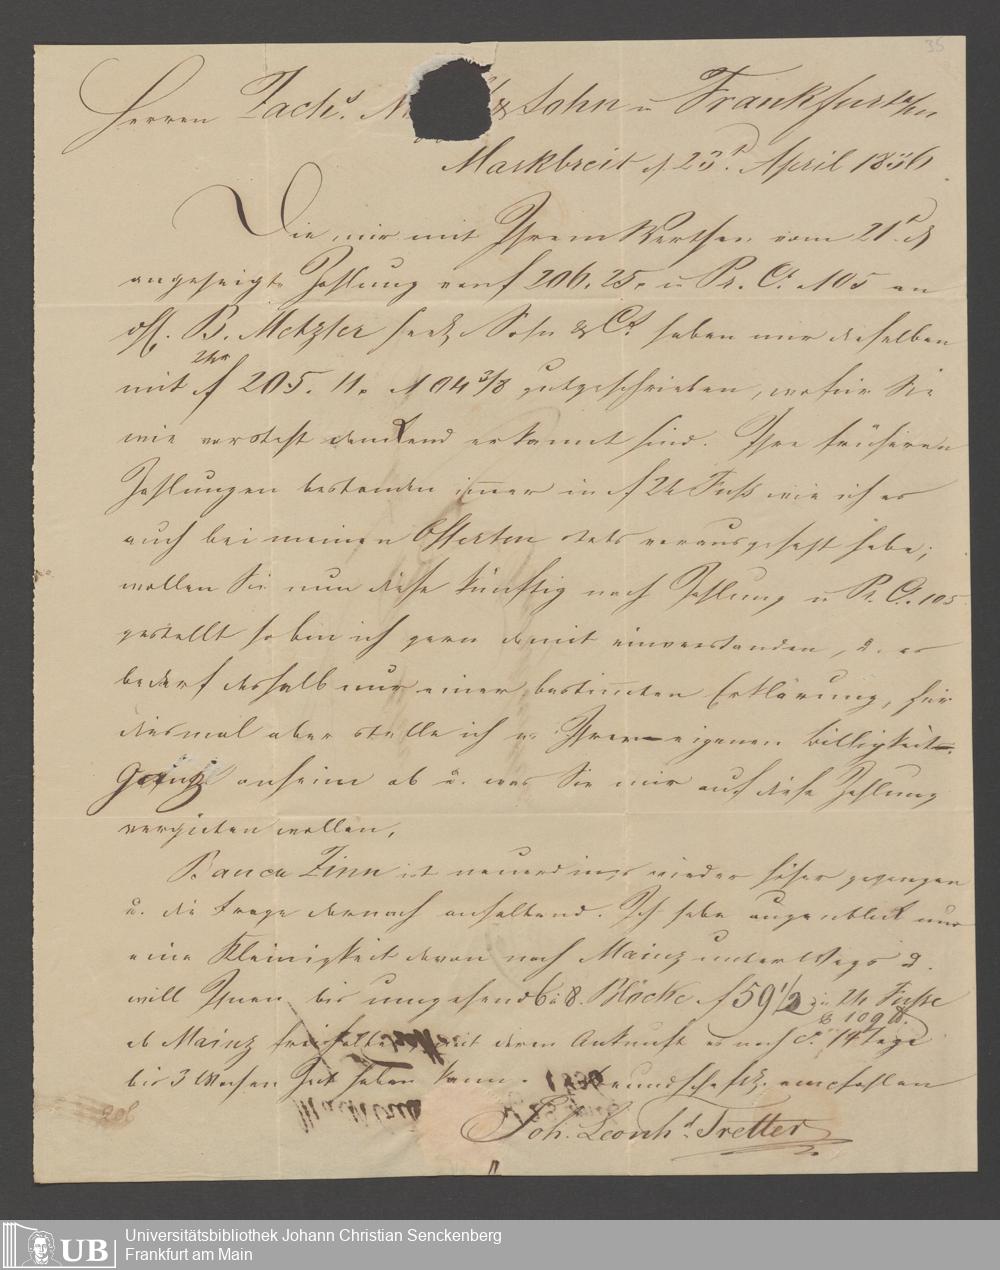 35
Herren Zach.s & Sohn in Frankfurt a/m
Marktbreit d. 23t. April 1836
Die mir mit Ihrem Werthen vom 21t. d
angezeigte Zahlung von f 206. 25. in Pr. Ct. a 105 an
HH. B. Metzler seel. Sohn & Co haben mir dieselben
mit 24r f 205. 11. a 104 3/8 gutgeschrieben, wofür Sie
wie vorsteht dankend erkannt sind. Ihre früheren
Zahlungen bestanden immer in f 24 Fuß wie ich es
auch bei meinen Offerten stets vorausgesetzt habe;
wollen Sie nun diese künftig nach Zahlung in Pr. Ct. 105
gestellt so bin ich gern damit einverstanden, u. es
bedarf deshalb nur einer bestimmten Erklärung, für
diesmal aber stelle ich es Ihrer eigenen Billigkeit
ganz anheim ob u. was Sie mir auf diese Zahlung
vergüten wollen.
Banca Zinn ist neuerdings wieder höher gegangen
u. die Frage darnach anhaltend. Ich habe augenblickl nur
eine Kleinigkeit davon nach Mainz unter Wegs u.
will Ihnen bis umgehend 6 à 8 Blöcke f 59 1/2 in 24 Fuße
109 ℔.
ab Mainz freihalten mit deren Ankunft es noch ca 14 Tage
bis 3 Wochen Zeit haben kann. Freundschaftl. empfohlen
Joh. Leonh.d Tretter
208
UB
Universitätsbibliothek Johann Christian Senckenberg
Frankfurt am Main